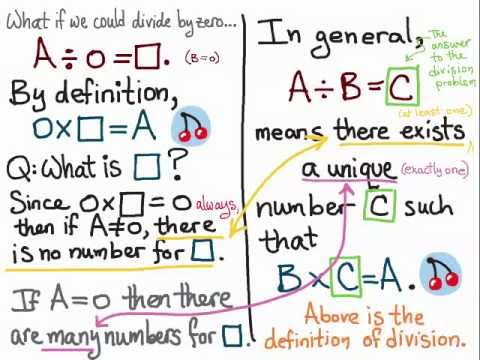 What if we could divide by zero...
A÷0=□. (B=0)
By definition,
0×□=A
Q: What is □?
Since 0×□=0 always,
then if A≠0, there
is no number for □.
If A=0 then there
are many numbers for □.
In general,
The answer
to the
division
problem
A÷B=C
(at least one)
means there exists
a unique (exactly one)
number C such
that
B×C=A.
Above is the
definition of division.